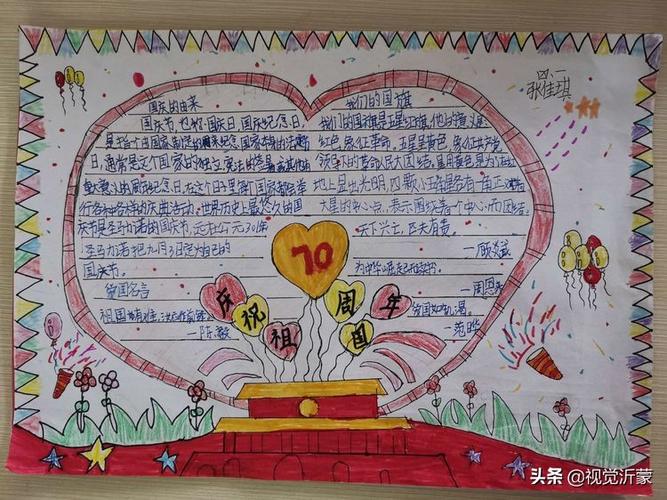 四、一
张佳琪
国庆的由来
国庆节,也称国庆日、国庆纪念日,
是指
日,通常是这个国家的独立、宪法的签署或其他
有重大意义的周年纪念日,在这个日子里每个国家都会举
行各种各样的庆典活动。世界历史上最悠久的国
庆节是圣马力诺的国庆节,元
圣马力诺把九月3日定为自己的
国庆节。
爱国名言
祖国
一陈毅
我们的国旗
我们的国旗是五星红旗,他的含义是
红色象征革命,五星呈黄色,象征共产党
领导下的革命人民大团结,星用黄色是为
地上显出光明,四颗小五星各有一角正
大星的中心点,表示围绕着一个中心而团结。
天下兴亡,匹夫有责。
一顾炎武
为中华崛起而读书。
一周恩来
爱国如饥渴。
一范晔
70
庆祝祖国周年
头条 @视觉沂蒙